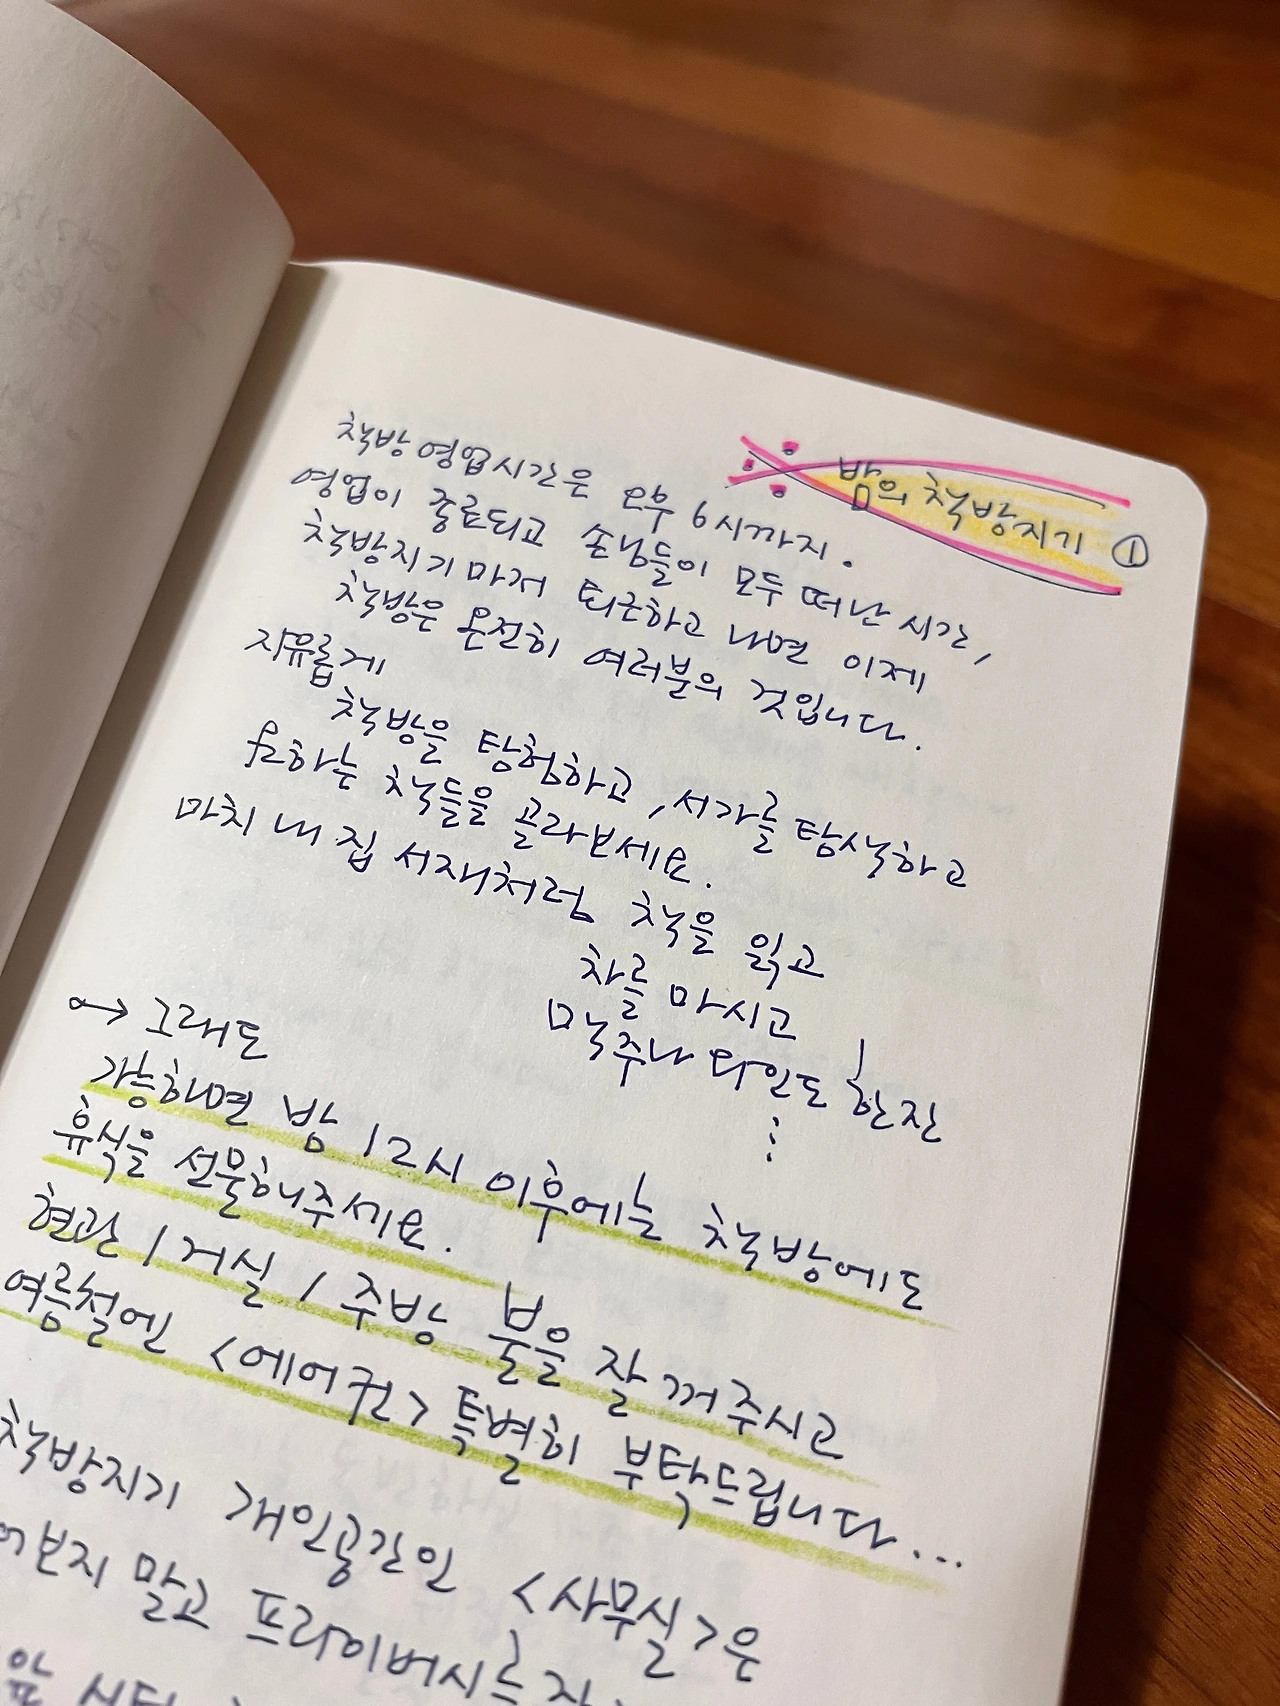 밤의 책방지기 ①
책방 영업시간은 오후 6시까지.
영업이 종료되고 손님들이 모두 떠난 시간,
책방지기마저 퇴근하고 나면 이제
책방은 온전히 여러분의 것입니다.
자유롭게
책방을 탐험하고, 서가를 탐색하고
원하는 책들을 골라보세요.
마치 내 집 서재처럼 책을 읽고
차를 마시고
맥주나 와인도 한잔
⋮
→ 그래도
가능하면 밤 12시 이후에는 책방에도
휴식을 선물해주세요.
현관 / 거실 / 주방 불을 잘 꺼주시고
여름철엔 <에어컨> 특별히 부탁드립니다...
책방지기 개인공간인 <사무실>은
말고 프라이버시를